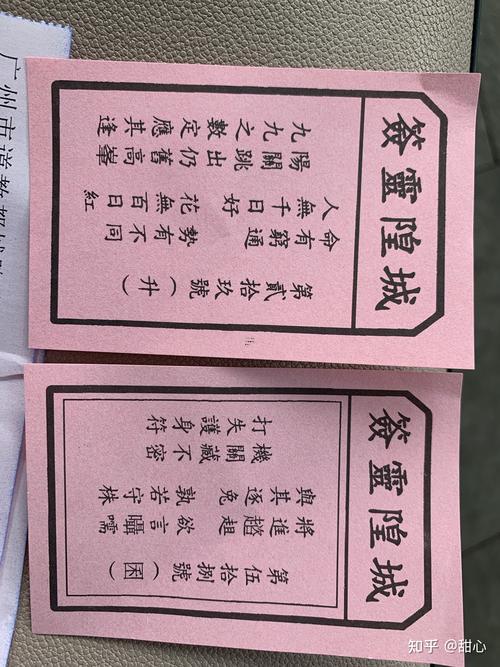 城隍靈簽
第貳拾玖號（升）
命有窮通 勢有不同
人無千日好 花無百日紅
陽關跳出仍舊高峯
九九之數定應其逢
城隍靈簽
第伍拾捌號（困）
將進趑趄 欲言囁嚅
與其逐兔 孰若守株
機關藏不密
打失護身符
广州市道教都城
知乎 @甜心